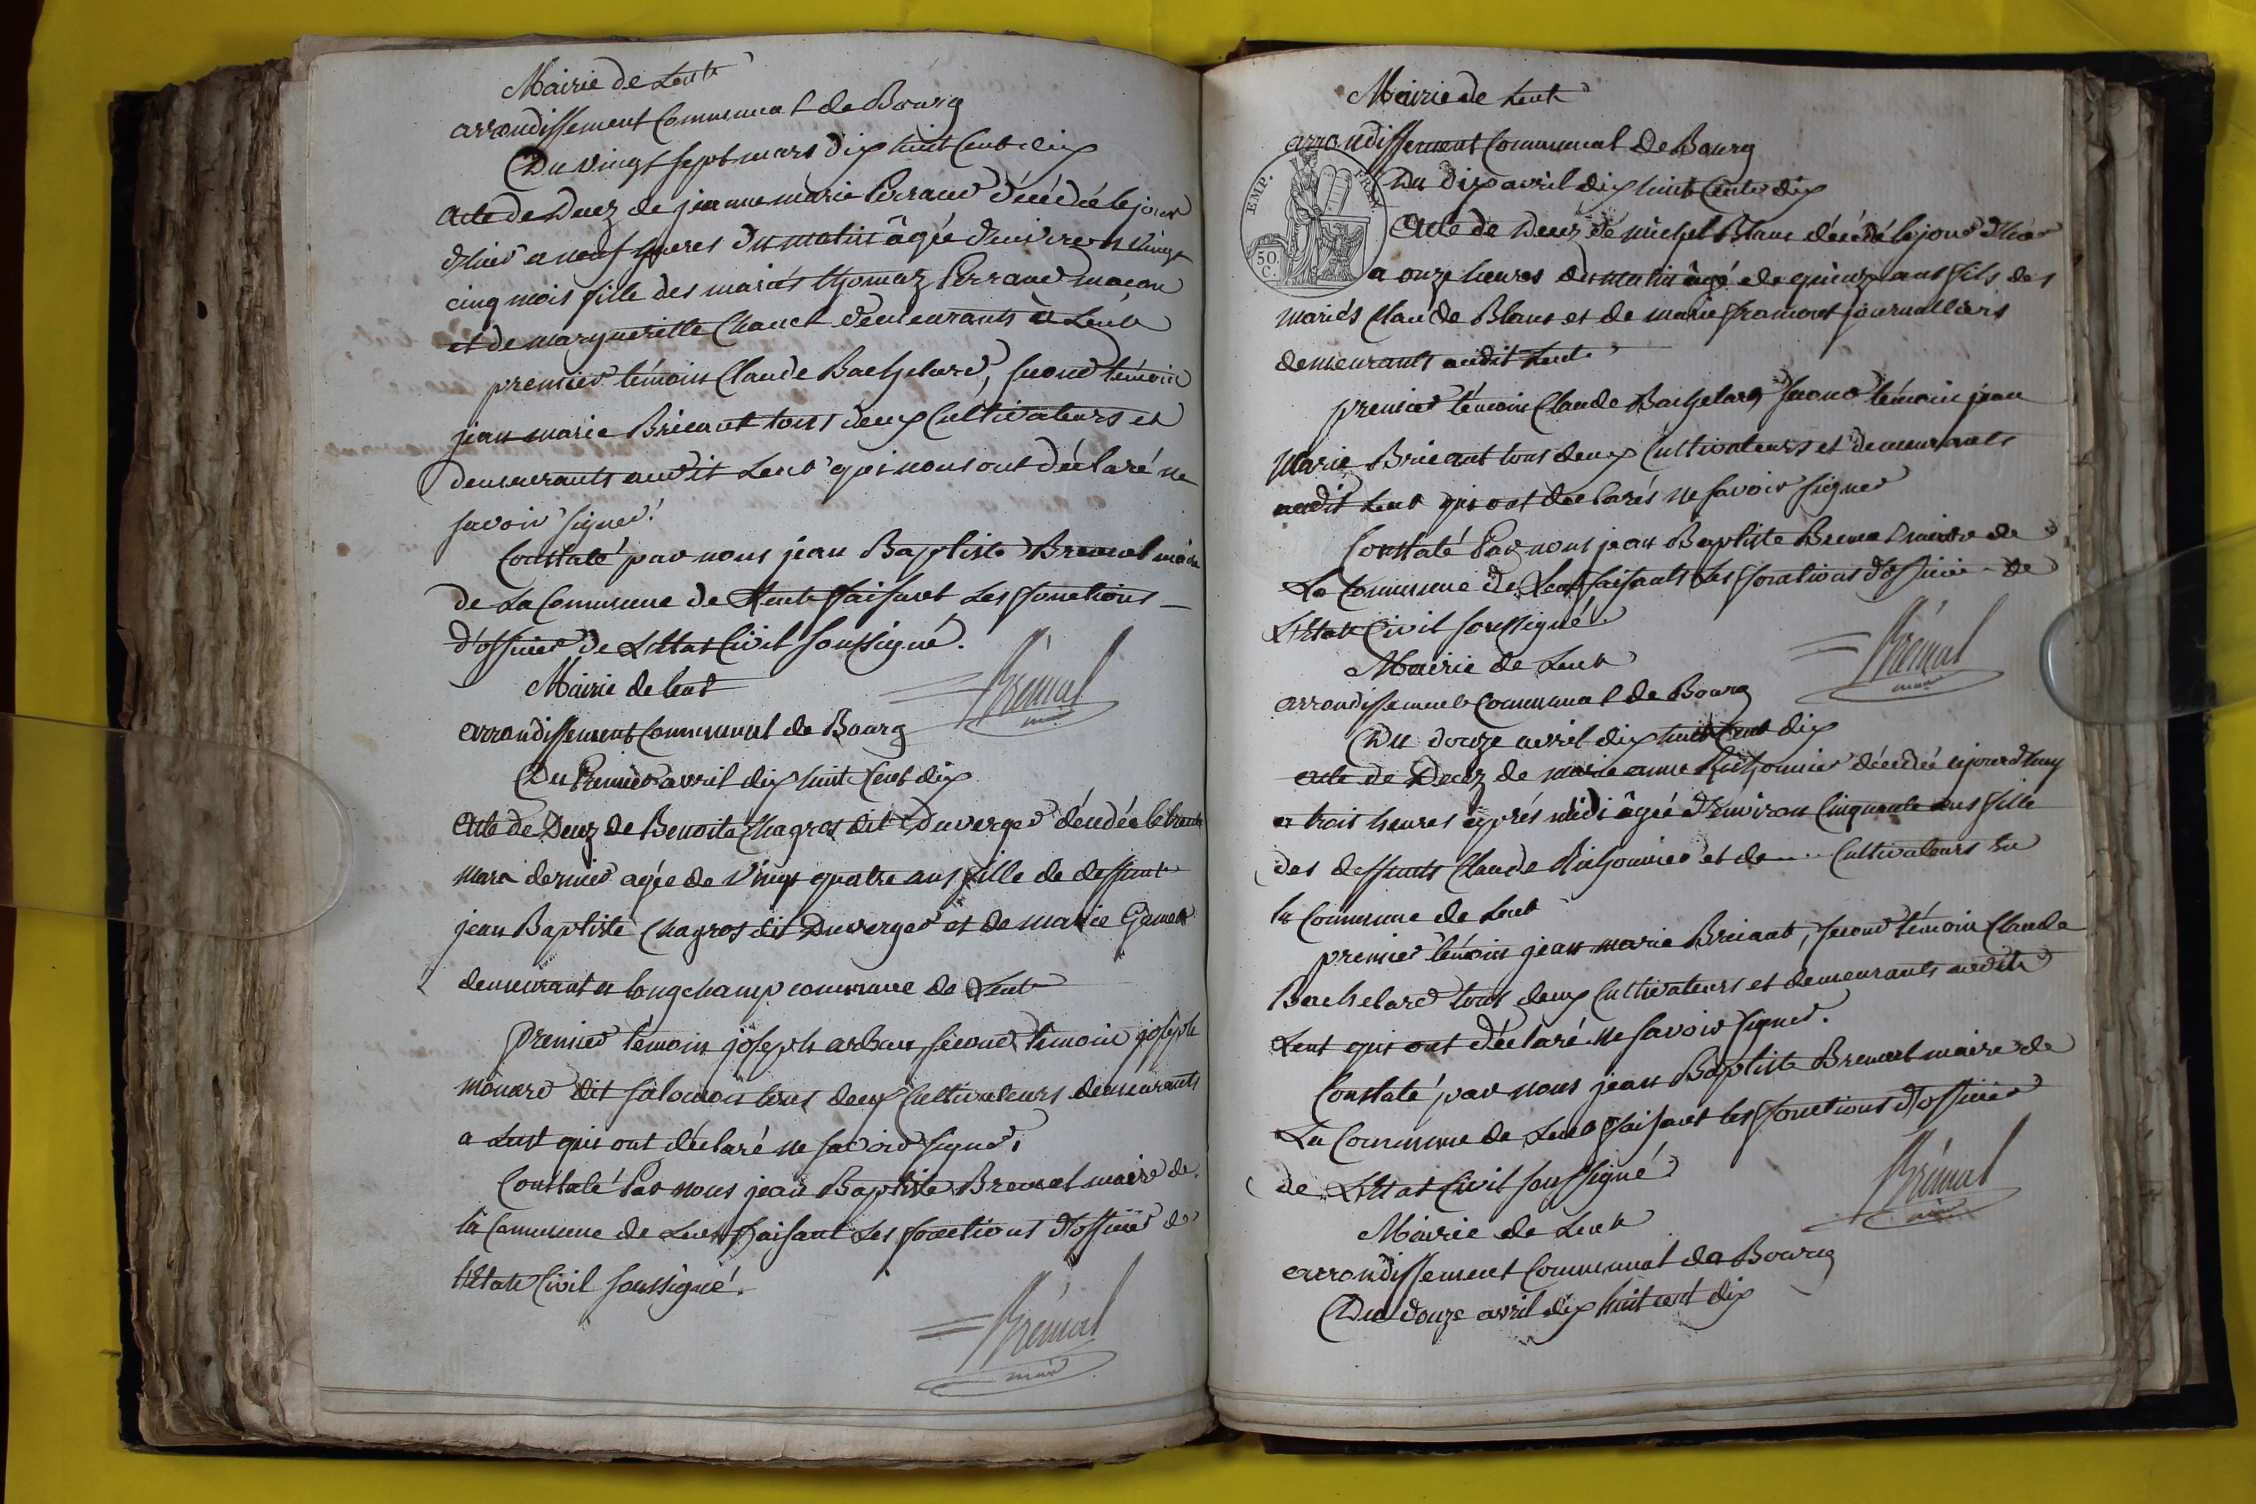 Mairie de Lent
arrondissement Communal de Bourg
Du vingt sept mars dix huit Cent dix
Acte de Decez de jeanne marie Perraud décédée le jour
d'hier a neuf heures du matin âgée d'environ vingt
cinq mois fille des mariés thomaz Perraud maçon
et de marguerite Chanel demeurants à Lent
premier témoin Claude Bachelard, second témoin
jean marie Brieant tous deux Cultivateurs et
demeurants audit Lent qui nous ont déclaré ne
savoir signer.
Constaté par nous jean Baptiste Bremal maire
de La Commune de Lent faisant Les fonctions
d'officier de L'Etat Civil soussigné.
Brémal
maire
Mairie de lent
arrondissement Communal de Bourg
Du Premier avril dix huit Cent dix
Acte de Decez de Benoite Chagros dit Duverger décédée le trente
mars dernier agée de vingt quatre ans fille de deffunt
jean Baptiste Chagros dit Duverger et de marie
demeurant a longchamp commune de Lent
premier témoin joseph arban second témoin joseph
monard dit salomon tous deux Cultivateurs demeurants
a Lent qui ont déclaré ne savoir signer.
Constaté Par nous jean Baptiste Bremal maire de
la Commune de Lent faisant Les fonctions d'officier de
l'Etat Civil soussigné.
Brémal
maire
Mairie de Lent
arrondissement Communal de Bourg
EMP. FRAN.
50. C.
Du dix avril dix huit Cents dix
Acte de Decez de michel Blanc décédé le jour d'hier
a onze heures du matin âgé de quinze ans fils des
mariés Claude Blanc et de marie framont journalliers
demeurants audit Lent
premier témoin Claude Bachelard second témoin jean
Marie Brieant tous deux Cultivateurs et demeurants
audit Lent qui ont déclarés ne savoir signer
Constaté Par nous jean Baptiste Bremal maire de
La Commune de Lent faisants Les fonctions d'officier de
L'Etat Civil soussigné.
Brémal
maire
Mairie de Lent
arrondissement Communal de Bourg
Du douze avril dix huit Cent dix
acte de Decez de marie anne Richonnier décédée cejourd'huy
a trois heures après midi âgée d'environ Cinquante ans fille
des deffunts Claude Richonnier et de .... Cultivateurs en
la Commune de Lent
premier témoin jean marie Brieant, second témoin Claude
Bachelard tous deux Cultivateurs et demeurants audit
Lent qui ont déclaré ne savoir signer.
Constaté par nous jean Baptiste Bremal maire de
La Commune de Lent faisant les fonctions d'officier
de L'Etat Civil soussigné
Brémal
maire
Mairie de Lent
arrondissement Communal de Bourg
Du douze avril dix huit cent dix